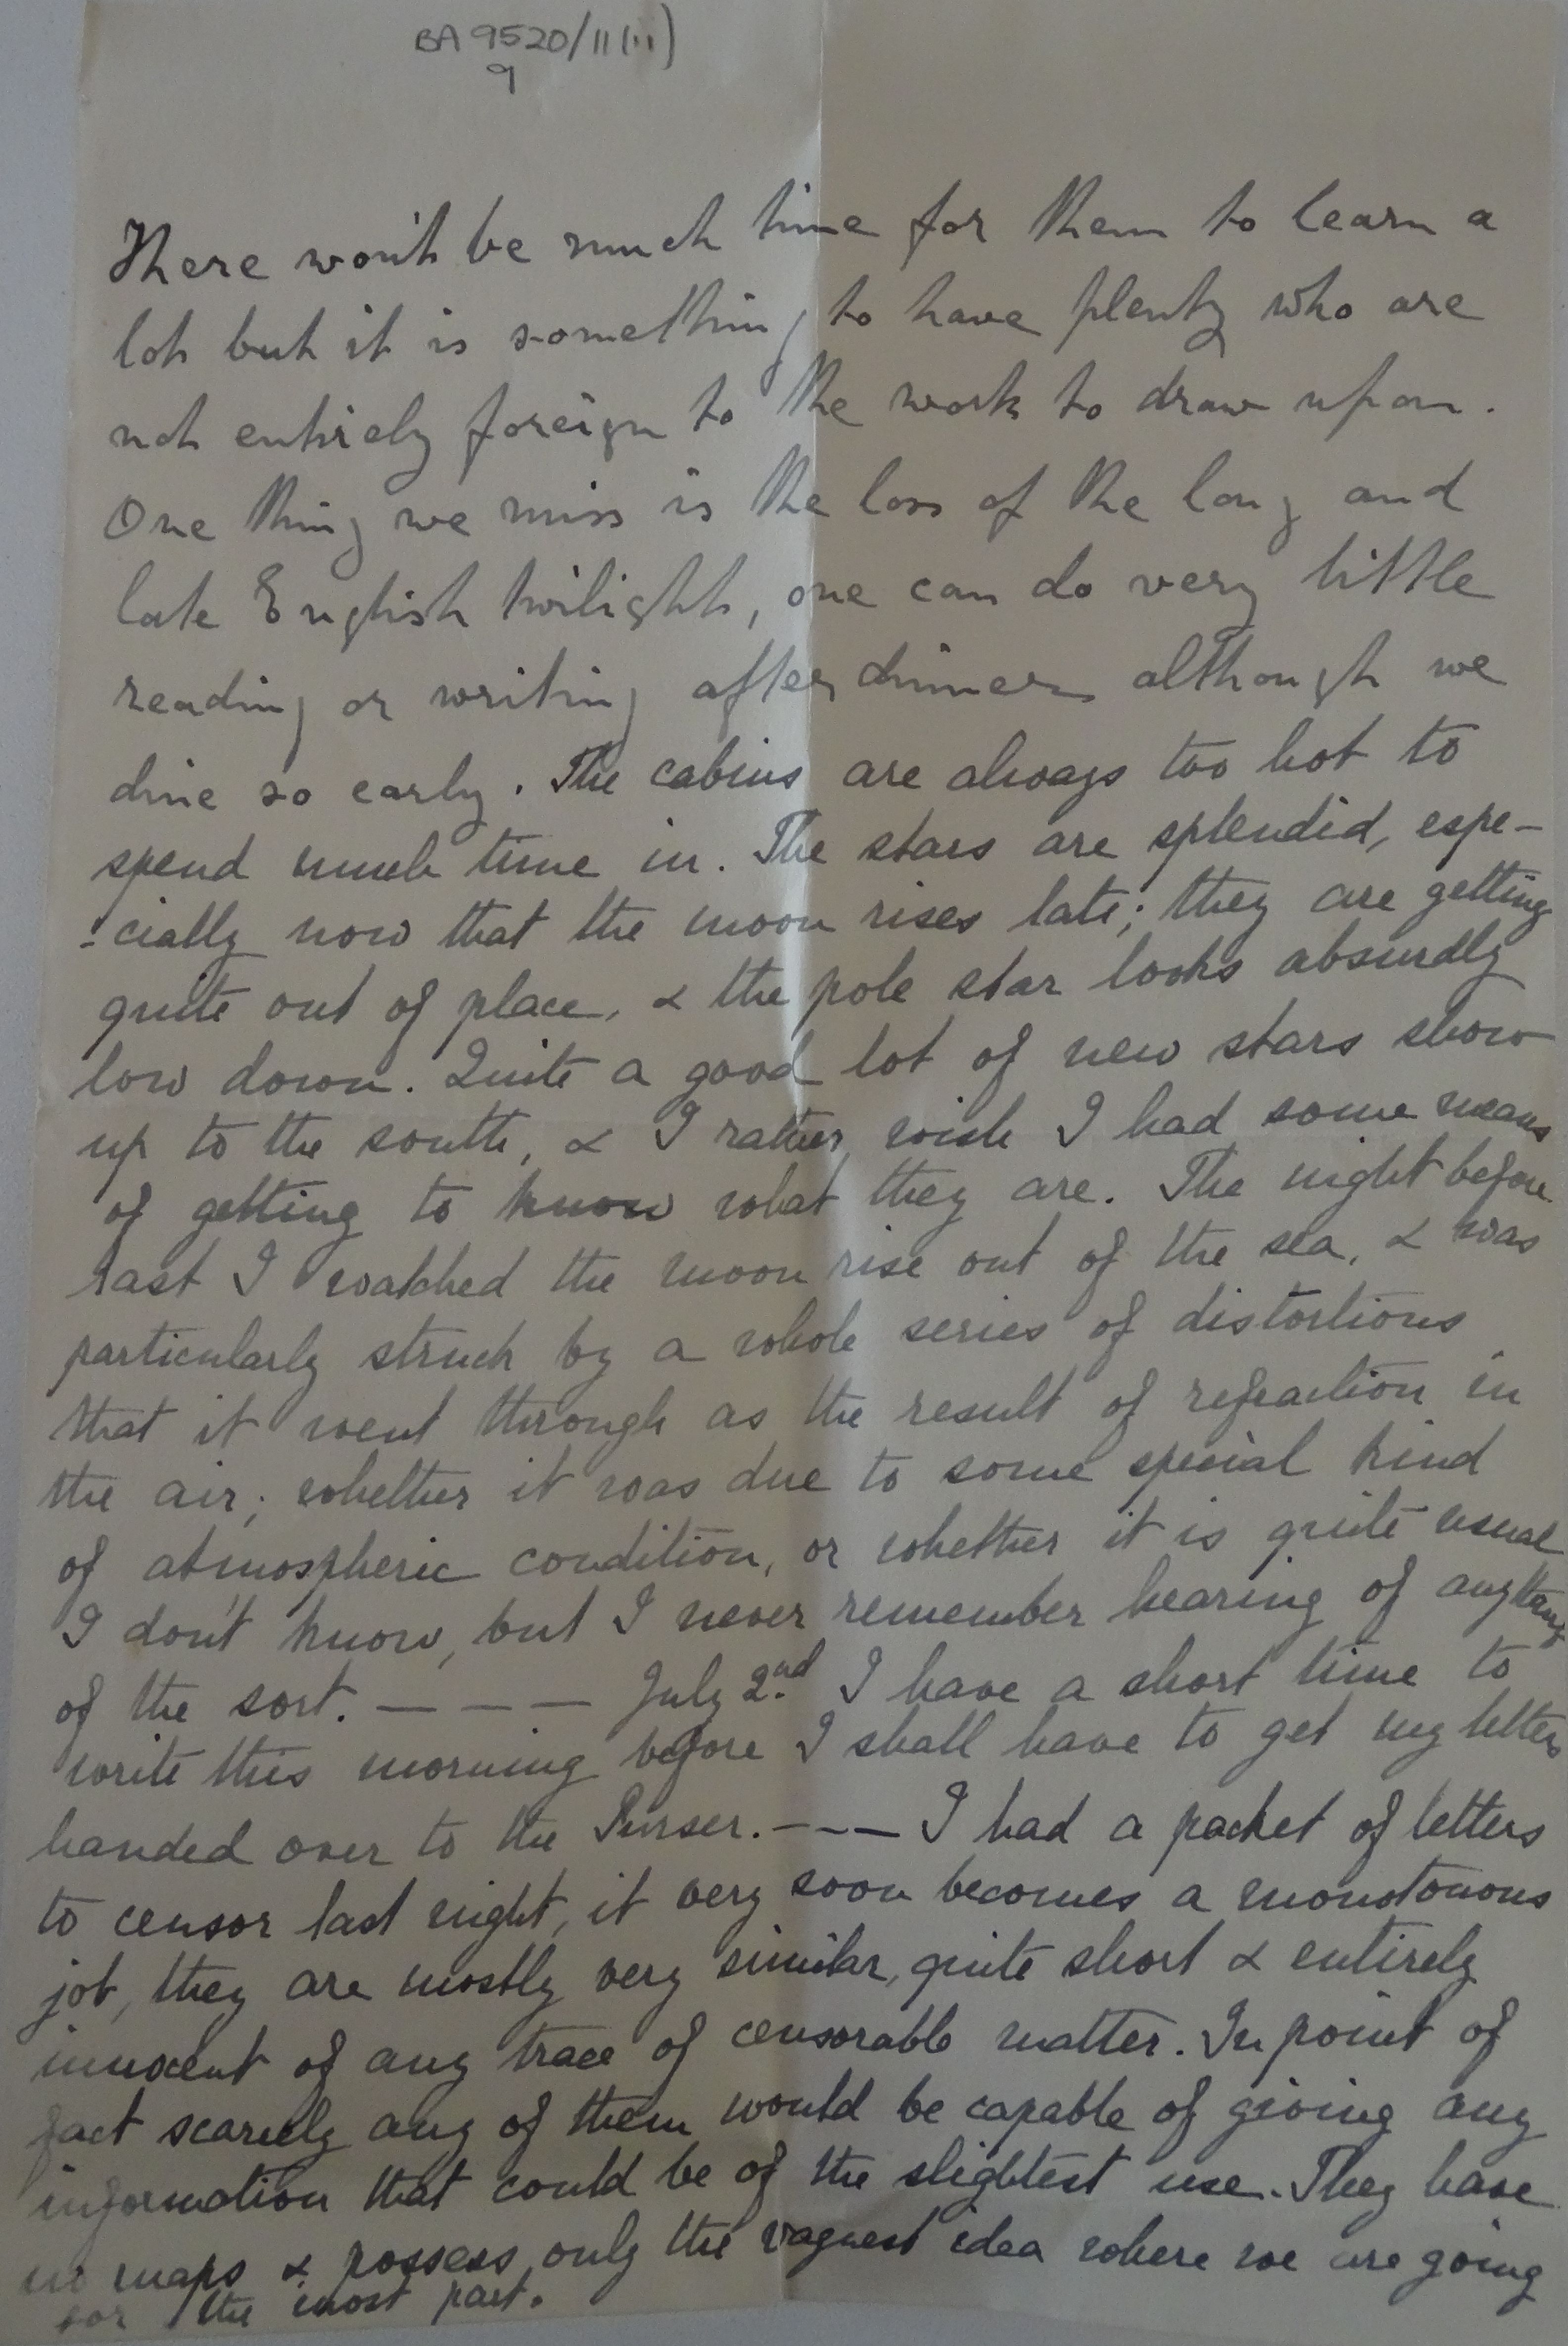 BA 9520/11(ii)
9
There won't be much time for them to learn a
lot but it is something to have plenty who are
not entirely foreign to the work to draw upon.
One thing we miss is the loss of the long and
late English twilight, one can do very little
reading or writing after dinner although we
dine so early. The cabins are always too hot to
spend much time in. The stars are splendid, espe-
-cially now that the moon rises late; they are getting
quite out of place, & the pole star looks absurdly
low down. Quite a good lot of new stars show
up to the south, & I rather wish I had some means
of getting to know what they are. The night before
last I watched the moon rise out of the sea, & was
particularly struck by a whole series of distortions
that it went through as the result of refraction in
the air; whether it was due to some special kind
of atmospheric condition, or whether it is quite usual
I don't know, but I never remember hearing of anything
of the sort. — — — July 2nd. I have a short time to
write this morning before I shall have to get my letters
handed over to the Purser. — — — I had a packet of letters
to censor last night, it very soon becomes a monotonous
job, they are mostly very similar, quite short & entirely
innocent of any trace of censorable matter. In point of
fact scarcely any of them would be capable of giving any
information that could be of the slightest use. They have
no maps & possess only the vaguest idea where we are going
for the most part.